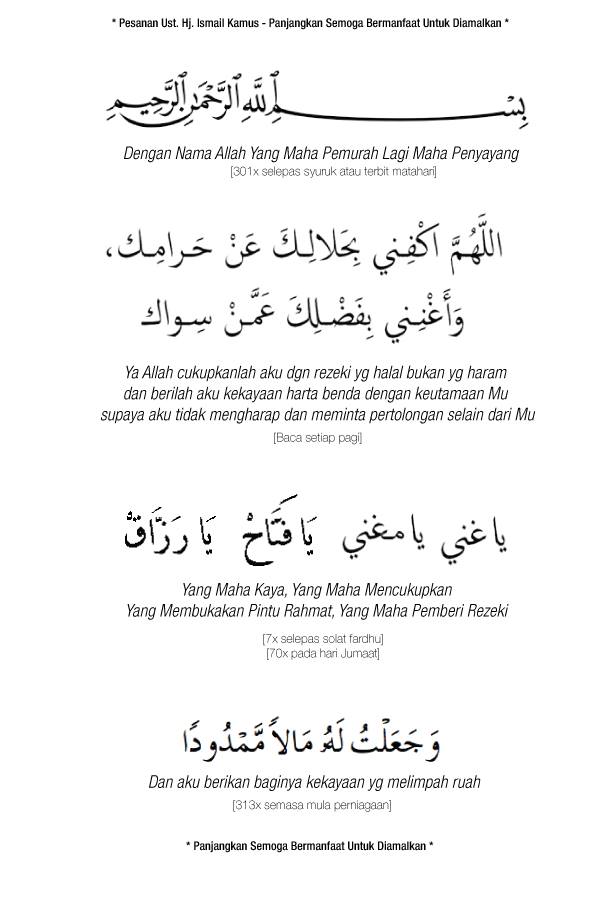 * Pesanan Ust. Hj. Ismail Kamus - Panjangkan Semoga Bermanfaat Untuk Diamalkan *
بِسْمِ اللَّهِ الرَّحْمَٰنِ الرَّحِيمِ
Dengan Nama Allah Yang Maha Pemurah Lagi Maha Penyayang
[301x selepas syuruk atau terbit matahari]
اللَّهُمَّ اكْفِني بِحَلالِـكَ عَنْ حَـرامِـك،
وَأَغْنِـني بِفَضْـلِكَ عَمَّـنْ سِـواك
Ya Allah cukupkanlah aku dgn rezeki yg halal bukan yg haram
dan berilah aku kekayaan harta benda dengan keutamaan Mu
supaya aku tidak mengharap dan meminta pertolongan selain dari Mu
[Baca setiap pagi]
يا غني يا مغني يَا فَتَّاحْ يَا رَزَّاقْ
Yang Maha Kaya, Yang Maha Mencukupkan
Yang Membukakan Pintu Rahmat, Yang Maha Pemberi Rezeki
[7x selepas solat fardhu]
[70x pada hari Jumaat]
وَجَعَلْتُ لَهُۥ مَالًا مَّمْدُودًا
Dan aku berikan baginya kekayaan yg melimpah ruah
[313x semasa mula perniagaan]
* Panjangkan Semoga Bermanfaat Untuk Diamalkan *